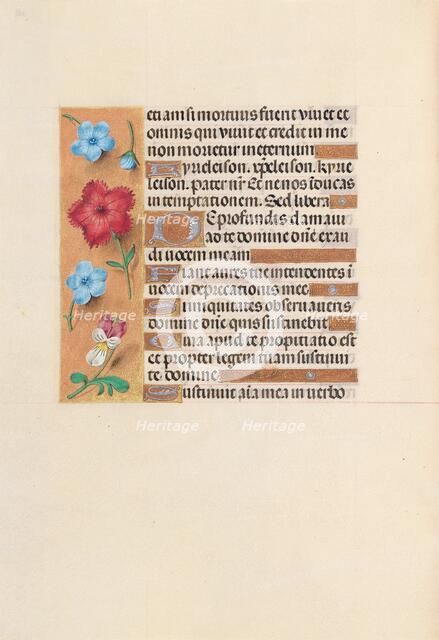 etiam si mortuus fuerit vivet et
omnis qui vivit et credit in me
non morietur in eternum
Kyrieleison. xp̄eleison. kyrie
leison. pater nr̄ Et ne nos inducas
in temptationem. Sed libera
De profundis clamavi
ad te domine dn̄e exau
di vocem meam
Fiant aures tue intendentes i
vocem deprecationis mee
Si iniquitates observaveris
domine dn̄e quis sustinebit
Quia apud te propitiatio est
et propter legem tuam sustinui
te domine
Sustinuit aīa mea in verbo
Heritage
Heritage
Heritage
Heritage
Heritage
Heritage